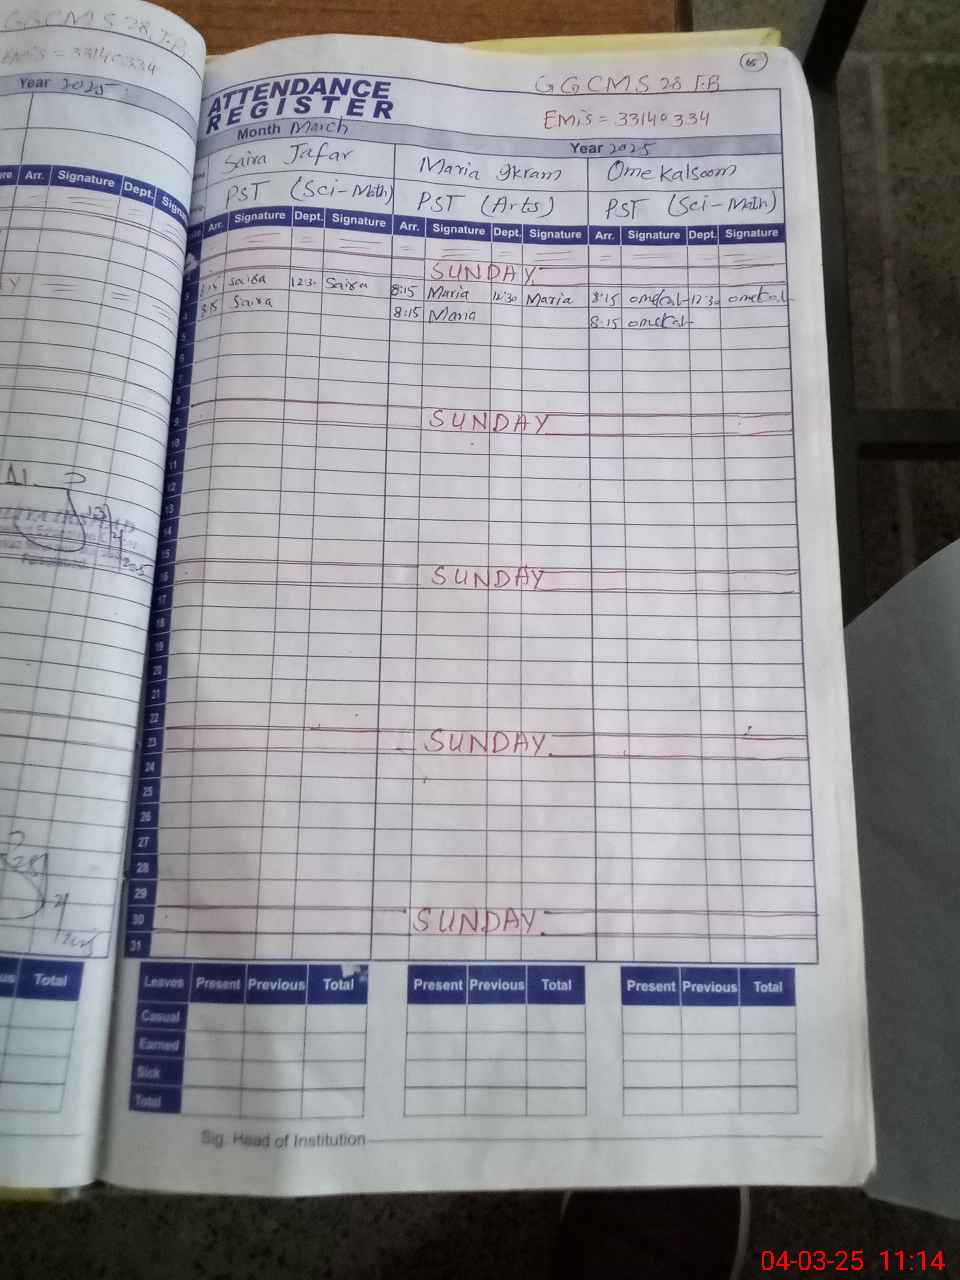 GGCMS 28 J.B
EMiS = 33140334
Year 2025
Arr. Signature Dept.
65
GGCMS 28 J.B
ATTENDANCE
REGISTER
EMiS = 33140334
Month March
Year 2025
Saira Jafar Maria Ikram Ome kalsoom
PST (Sci-Math) PST (Arts) PST (Sci-Math)
Arr. Signature Dept. Signature Arr. Signature Dept. Signature Arr. Signature Dept. Signature
SUNDAY
3 8:15 Saira 12:30 Saira 8:15 Maria 12:30 Maria 8:15 omekal 12:30 omekal
4 8:15 Saira 8:15 Maria 8:15 omekal
5
6
7
8
9 SUNDAY
10
11
12
13
14
15
16 SUNDAY
17
18
19
20
21
22
23 SUNDAY
24
25
26
27
28
29
30 SUNDAY
31
Total
Leaves Present Previous Total Present Previous Total Present Previous Total
Casual
Earned
Sick
Total
Sig. Head of Institution
04-03-25 11:14